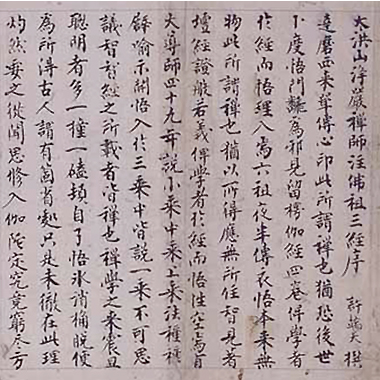 大洪山淨嚴禪師注佛祖三經序
許端夫撰
達磨西來單傳心印此所謂禪也猶恐後世
不度悟門翻為邪見留楞伽經四卷俾學者
於經而悟理入焉六祖夜半傳衣悟本來無
物此所謂禪也猶以所得應無所住智見著
壇經證般若義俾學者於經而悟性空焉自
大導師四十九年說小乘中乘上乘法種種
譬喻示開悟入於三乘中皆說一乘不可思
議智智經之所載者皆禪也禪學之來震旦
聰明者多一撞一磕頭自了悟氷消桶脫便
為所得古人謂有屙省處只是未徹在此理
灼然要之從聞思修入伽陀宗究竟窮盡方